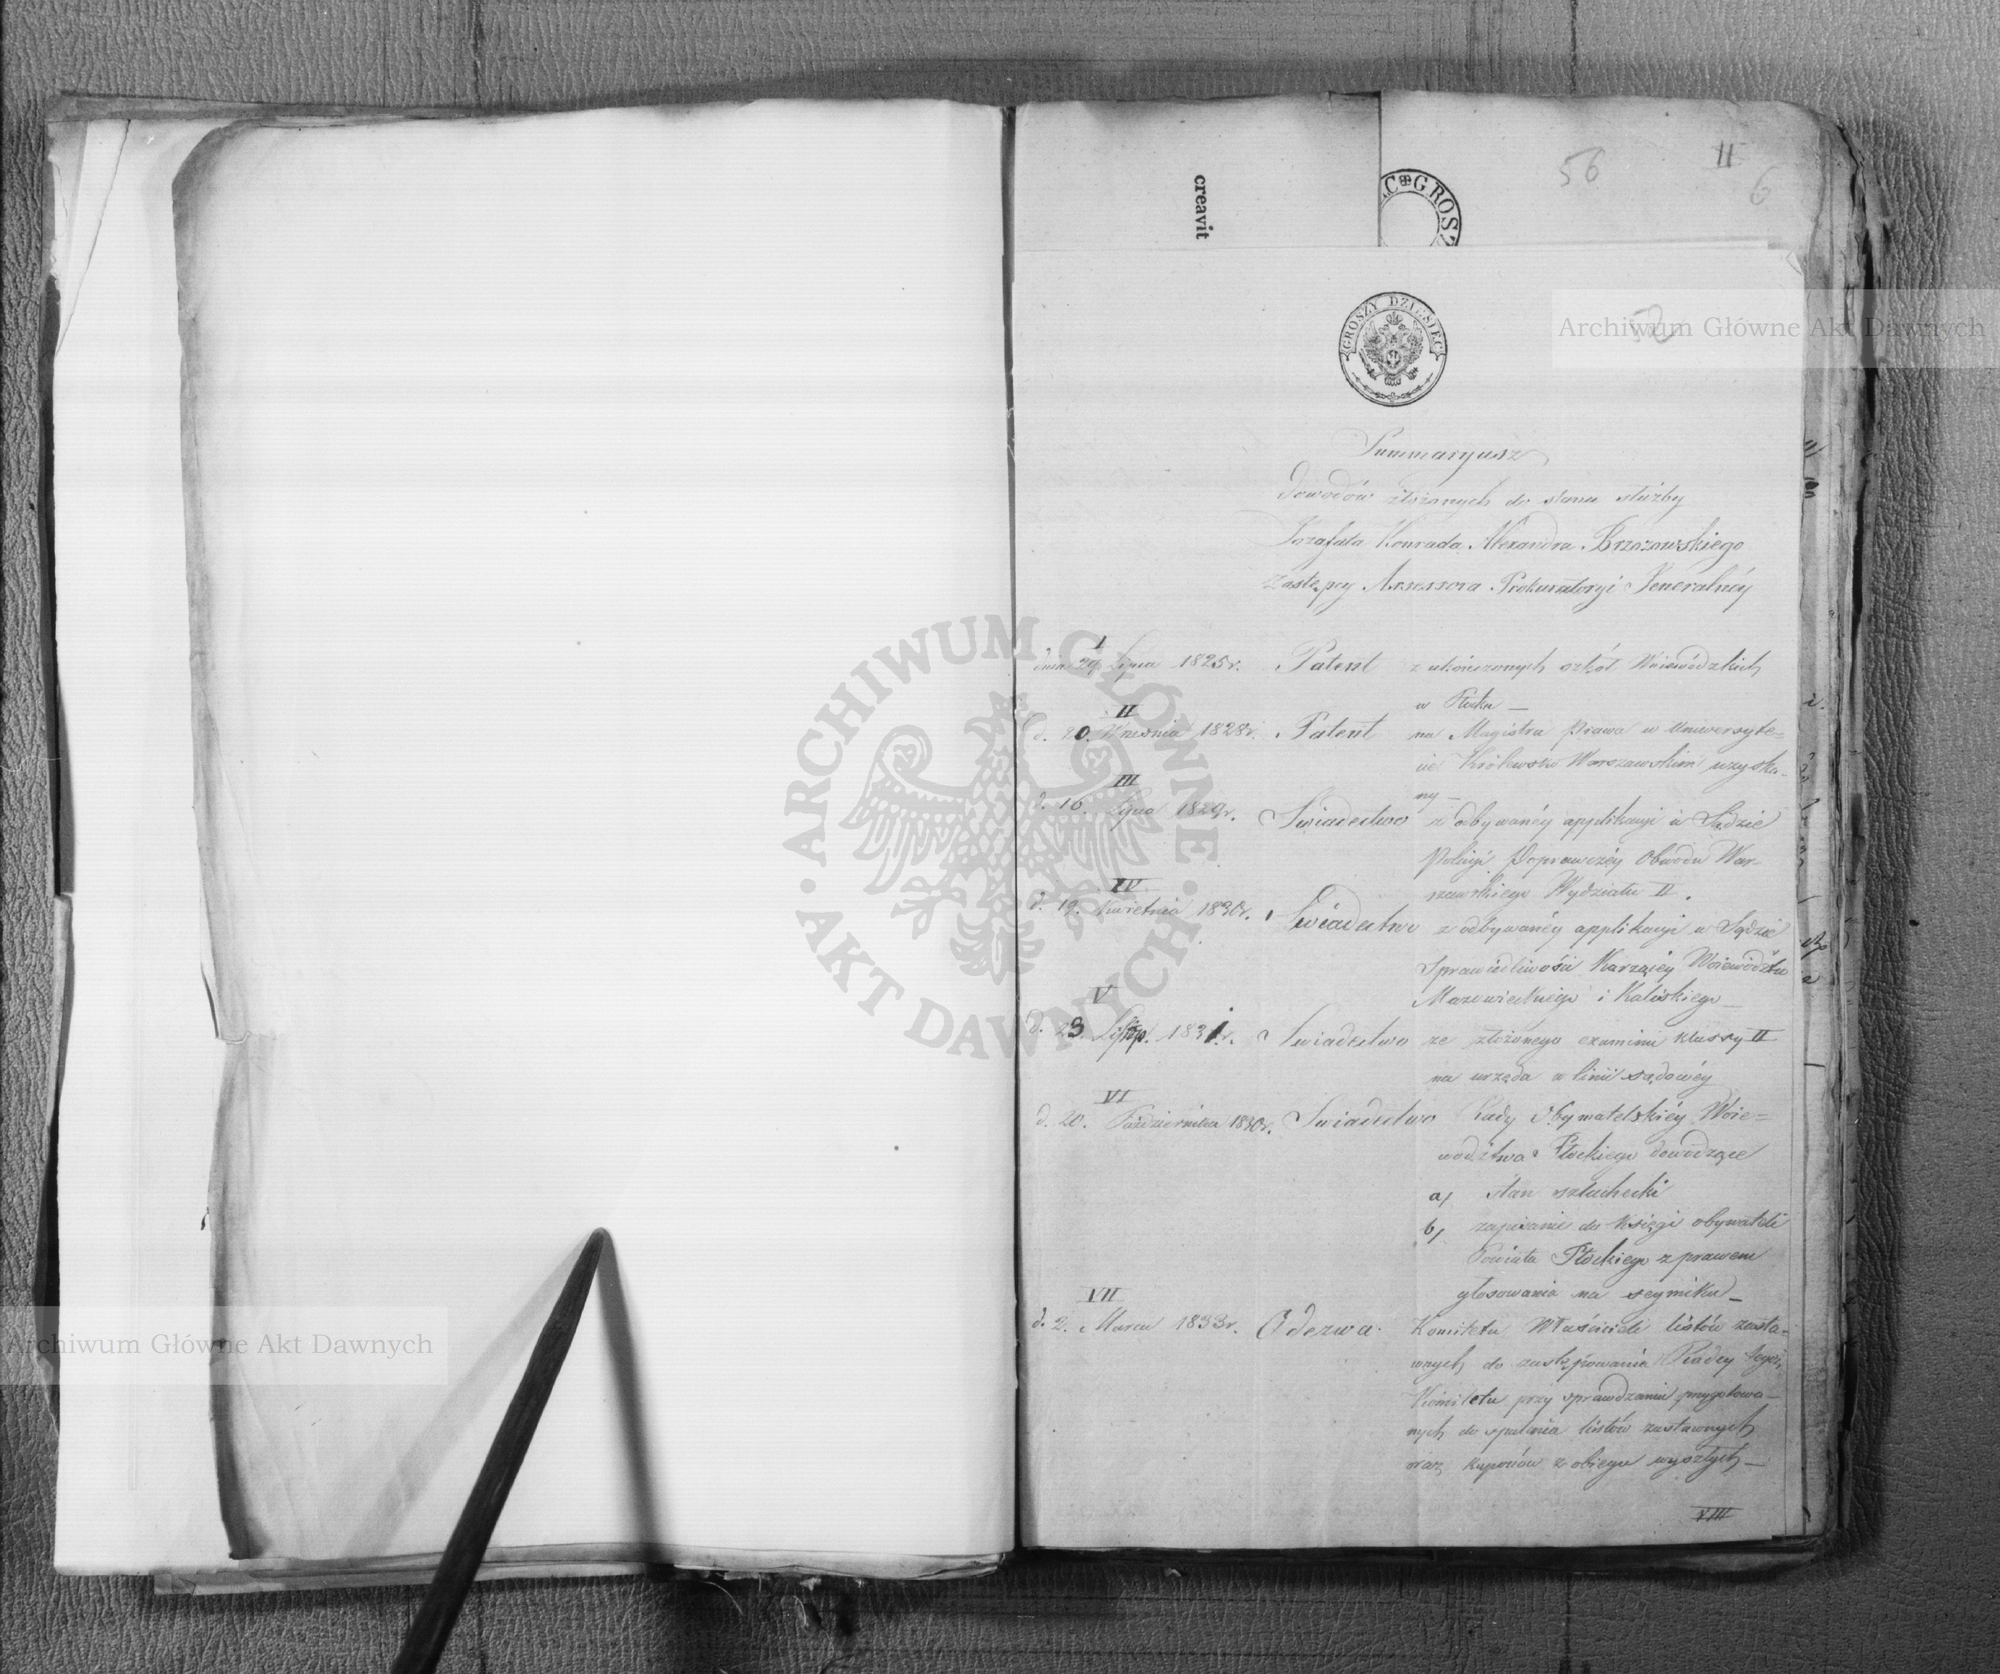 creavit
56
II
6
C GROSZ
GROSZY DZIESIĘĆ
52
Archiwum Główne Akt Dawnych
Summaryusz
dowodów złożonych do stanu służby
Jozafata Konrada Alexandra Brzozowskiego
Zastępcy Assessora Prokuratoryi Jeneralnéy
I
dnia 29 Lipca 1825 r. Patent z ukończonych szkół Woiewódzkich
w Płocku —
II
d. 20. Września 1828 r. Patent na Magistra Prawa w Uniwersyte=
cie Królewsko Warszawskim uzyska-
ny —
III
d. 16. Lipca 1829 r. Swiadectwo z odbywanéy applikacyi w Sądzie
Policyi Poprawczéy Obwodu War-
szawskiego Wydziału II.
IV
d. 19. Kwietnia 1830 r. Swiadectwo z odbywanéy applikacyi w Sądzie
Sprawiedliwości Karzącéy Woiewództw
Mazowieckiego i Kaliskiego —
V
d. 23 Listop. 1831 r. Swiadectwo ze złożonego examinu klassy II
na urzęda w linii sądowéy
VI
d. 20. Października 1830 r. Swiadectwo Rady Obymatelskiéy Woie=
wództwa Płockiego dowodzące
a/ stan szlachecki
b/ zapisanie do Księgi obywateli
Powiatu Płockiego z prawem
głosowania na seymiku —
VII
d. 2. Marca 1833 r. Odezwa Komitetu Właścicieli listów zasta-
wnych do zastępowania Radcy tegoż
Komitetu przy sprawdzaniu przygotowa-
nych do spalenia listów zastawnych
oraz kuponów z obiegu wyszłych —
VIII
ARCHIWUM GŁÓWNE · AKT DAWNYCH ·
Archiwum Główne Akt Dawnych